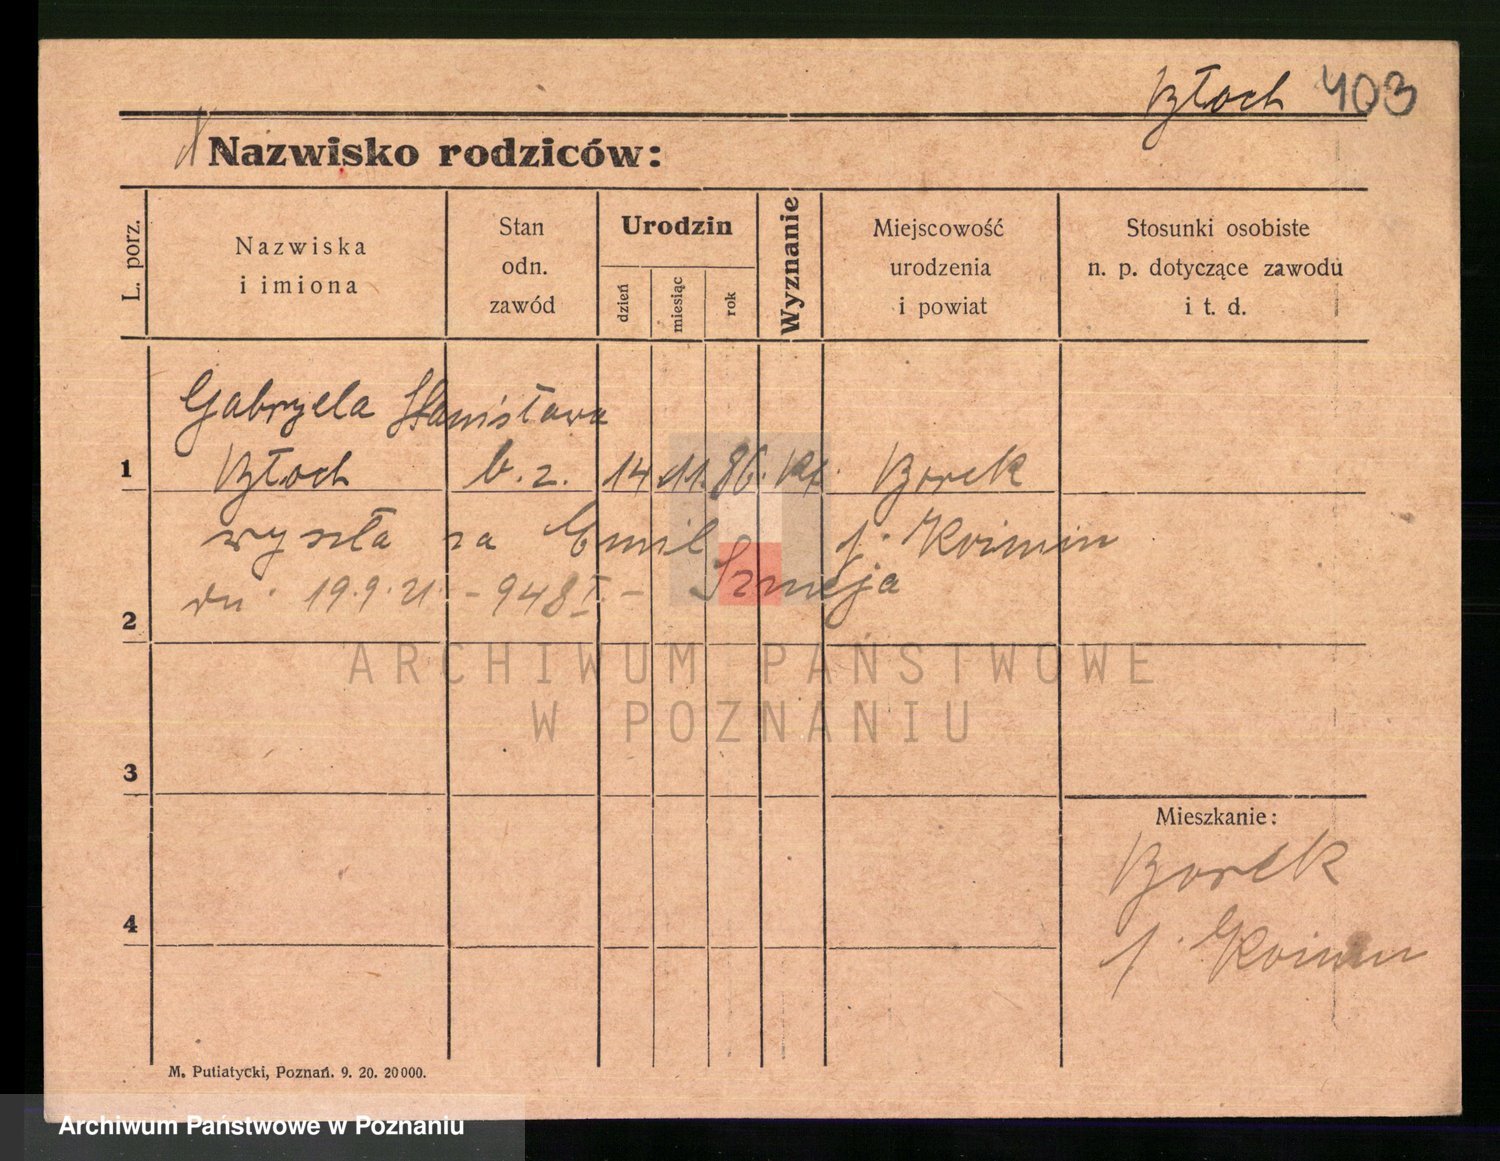 Błoch 403
Nazwisko rodziców:
L. porz.
Nazwiska
i imiona
Stan
odn.
zawód
Urodzin
dzień
miesiąc
rok
Wyznanie
Miejscowość
urodzenia
i powiat
Stosunki osobiste
n. p. dotyczące zawodu
i t. d.
Gabryela Stanisława
1 Błoch b. z. 14 11. 86. kt. Borek
wyszła za Emil p. Koźmin
2 dn. 19.9.21. - 948 I. - Szmeja
ARCHIWUM PAŃSTWOWE
W POZNANIU
3
Mieszkanie:
Borek
4
p. Koźmin
M. Putiatycki, Poznań. 9. 20. 20000.
Archiwum Państwowe w Poznaniu